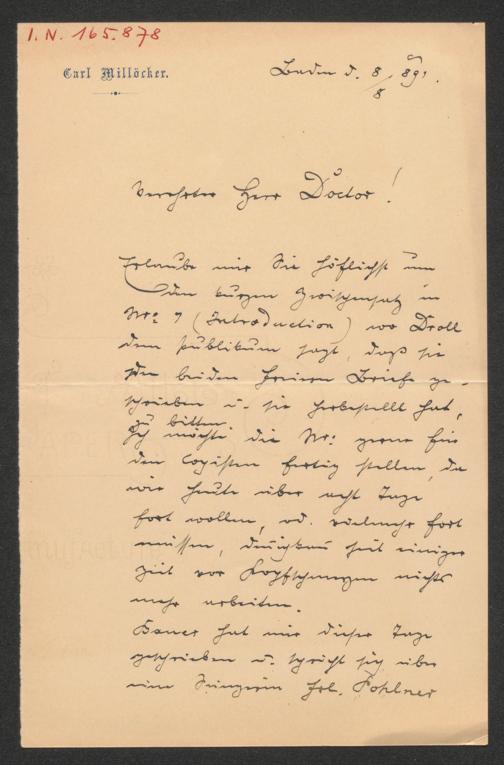 I.N. 165.878
Carl Millöcker.
Baden d. 8/8 891.
Verehrter Herr Doctor!
Erlaube mir Sie höflichst um
den kurzen Zwischensatz in
Nro: 7 (Introduction) wo Droll
dem Publikum sagt, daß sie
den beiden Briefe ge-
schrieben u. sie herbestellt hat,
zu bitten.
Ich möchte die Nro: gerne für
den Copisten fertig stellen, da
wir heute über acht Tage
fort wollen, od. vielmehr fort
müssen, den ich kan seit einiger
Zeit vor Kopfschmerzen nichts
mehr arbeiten.
Bauer hat mir dieser Tage
geschrieben u. spricht sich über
eine Sängerin Frl. Pohlner